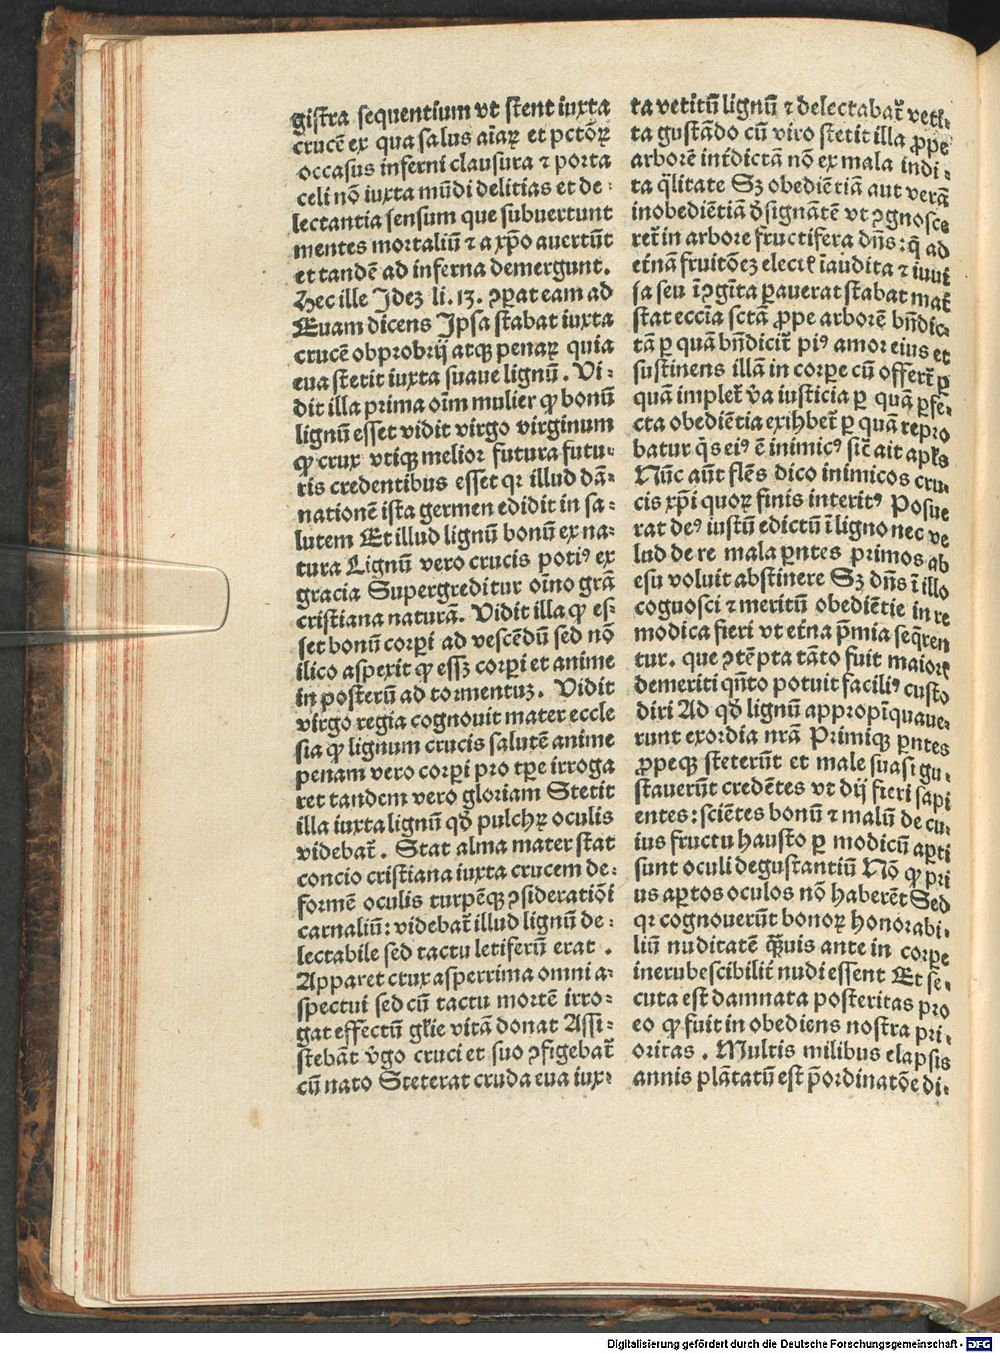 gistra sequentium vt stent iuxta
crucē ex qua salus aīaꝝ et pctōꝝ
occasus inferni clausura ⁊ porta
celi nō iuxta mūdi delitias et de⸗
lectantia sensum que subuertunt
mentes mortaliū ⁊ a xp̄o auertūt
et tandē ad inferna demergunt.
Hec ille Ideꝫ li. 13. ꝯꝑat eam ad
Euam dicens Ipsa stabat iuxta
crucē obprobrij atqꝫ penaꝝ quia
eua stetit iuxta suaue lignū. Vi⸗
dit illa prima oīm mulier ꝙ bonū
lignū esset vidit virgo virginum
ꝙ crux vtiqꝫ melior futura futu⸗
ris credentibus esset qꝛ illud dā⸗
nationē ista germen edidit in sa⸗
lutem Et illud lignū bonū ex na⸗
tura Lignū vero crucis potiꝰ ex
gracia Supergreditur oīno grā
cristiana naturā. Vidit illa ꝙ es⸗
set bonū corꝑi ad vescēdū sed nō
ilico aspexit ꝙ essꝫ corꝑi et anime
in posterū ad tormentuꝫ. Vidit
virgo regia cognouit mater eccle
sia ꝙ lignum crucis salutē anime
penam vero corꝑi pro tꝑe irroga
ret tandem vero gloriam Stetit
illa iuxta lignū qd̄ pulchꝝ oculis
videbat̄. Stat alma mater stat
concio cristiana iuxta crucem de⸗
formē oculis turpēqꝫ ꝯsideratiōi
carnaliū: videbat̄ illud lignū de⸗
lectabile sed tactu letiferū erat.
Apparet crux asperrima omni a⸗
spectui sed cū tactu mortē irro⸗
gat effectū gl̄ie vitā donat Assi⸗
stebāt v̄go cruci et suo ꝯfigebat̄
cū nato Steterat cruda eua iux⸗
ta vetitū lignū ⁊ delectabat̄ veti⸗
ta gustādo cū viro stetit illa ꝓpe
arborē int̄dictā nō ex mala indi⸗
ta q̄litate Sꝫ obediētiā aut verā
inobediētiā d̄signātē vt ꝯgnosce
ret̄ in arbore fructifera dn̄s: q̄ ad
et̄nā fruitōeꝫ elect īaudita ⁊ iuui
sa seu īꝯgīta ꝑauerat stabat mat̄
stat eccīa sctā ꝓpe arborē bn̄dic⸗
tā ꝑ quā bn̄dicit̄ piꝰ amor eius et
sustinens illā in corꝑe cū offert̄ ꝑ
quā implet̄ v̄a iusticia ꝑ quā ꝑfe⸗
cta obediētia exihbet̄ ꝑ quā repro
batur q̄s eiꝰ ē inimicꝰ sic̄ ait apl̄s
Nūc aūt flēs dico inimicos cru⸗
cis xp̄i quoꝝ finis interitꝰ Posue
rat deꝰ iustū edictū ī ligno nec ve
lud de re mala ꝑntes primos ab
esu voluit abstinere Sꝫ dn̄s ī illo
coguosci ⁊ meritū obediētie in re
modica fieri vt et̄na p̄mia seq̄ren
tur. que ꝯtēpta tāto fuit maioris
demeriti qn̄to potuit faciliꝰ custo
diri Ad qd̄ lignū appropīquaue⸗
runt exordia nr̄a Primiqꝫ ꝑntes
ꝓpeqꝫ steterūt et male suasi gu⸗
stauerūt credētes vt dij fieri sapi
entes: sciētes bonū ⁊ malū de cu⸗
ius fructu hausto ꝑ modicū aꝑti
sunt oculi degustantiū Nō ꝙ pri
us aꝑtos oculos nō haberēt Sed
qꝛ cognouerūt bonoꝝ honorabi⸗
liū nuditatē qꝫuis ante in corꝑe
inerubescibilit̄ nudi essent Et se⸗
cuta est damnata posteritas pro
eo ꝙ fuit in obediens nostra pri⸗
oritas. Multis milibus elapsis
annis plātatū est p̄ordinatōe di⸗
Digitalisierung gefördert durch die Deutsche Forschungsgemeinschaft - DFG